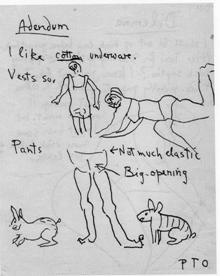 Adendum
I like cotton underware.
Vests so.
Pants
←Not much elastic
Big-opening
PTO